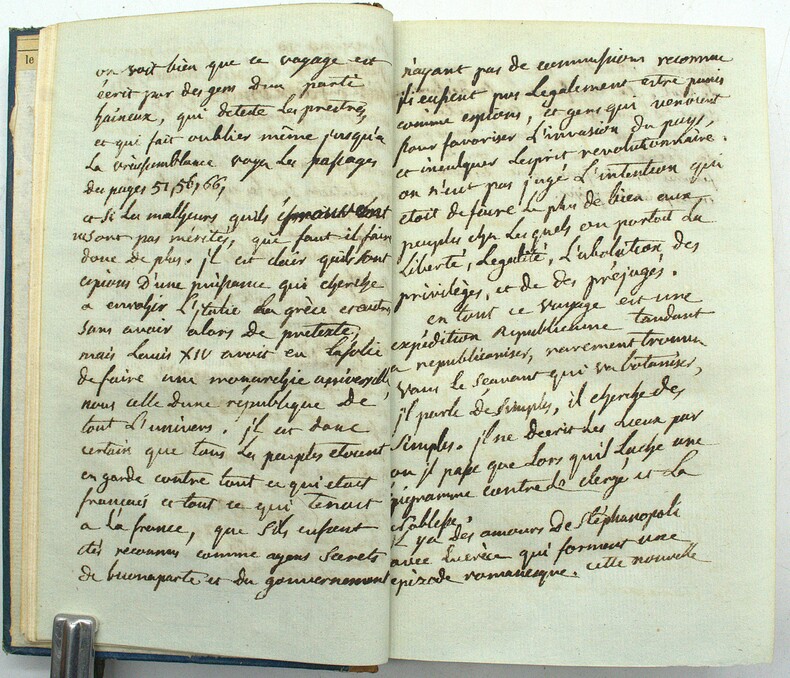 le
on voit bien que ce voyage est
écrit par des gens d'un parti
haineux, qui déteste les prestres,
et qui fait oublier même jusqu'a
La vraisemblance voyez Les passages
des pages 51, 56, 66,
et si Les malheurs quils éprouverent
ne sont pas mérités, que faut il faire
donc de plus. il est clair quils sont
espions D'une puissance qui cherche
a envahir L'italie La grèce
sans avoir alors de pretexte,
mais Louis XIV avoit eu La folie
de faire une monarchie universelle
nous celle dune république de
tout L'univers. il est donc
certain que tous Les peuples étoient
en garde contre tout ce qui etait
français et tout ce qui Tenoit
a La france, que sils eussent
étés reconnus comme agens secrets
de buonaparte et du gouvernement
n'ayant pas de commissions reconnue
ils eussent pus Legalement estre punis
comme espions, et gens qui venoient
pour favoriser L'invasion du pays,
et inculquer Lesprit revolutionnaire.
on n'eut pas jugé L'intention qui
étoit de faire Le plus de bien aux
peuples chez Les quels on portoit La
Liberté, Legalité, L'abolution des
privilèges, et de des préjugés.
en tout ce voyage est une
expédition Republicaine tendant
a republicaniser, rarement trouvez
vous le scavant qui va botaniser,
il parle de simples, il cherche des
simples. il ne decrit Les Lieux par
ou il passe que Lors quil Lache une
epigramme contre Le clergé et La
Noblesse.
il y a des amours de Stéphanopoli
avec Lucrèce qui forment une
episode romanesque. cette nouvelle